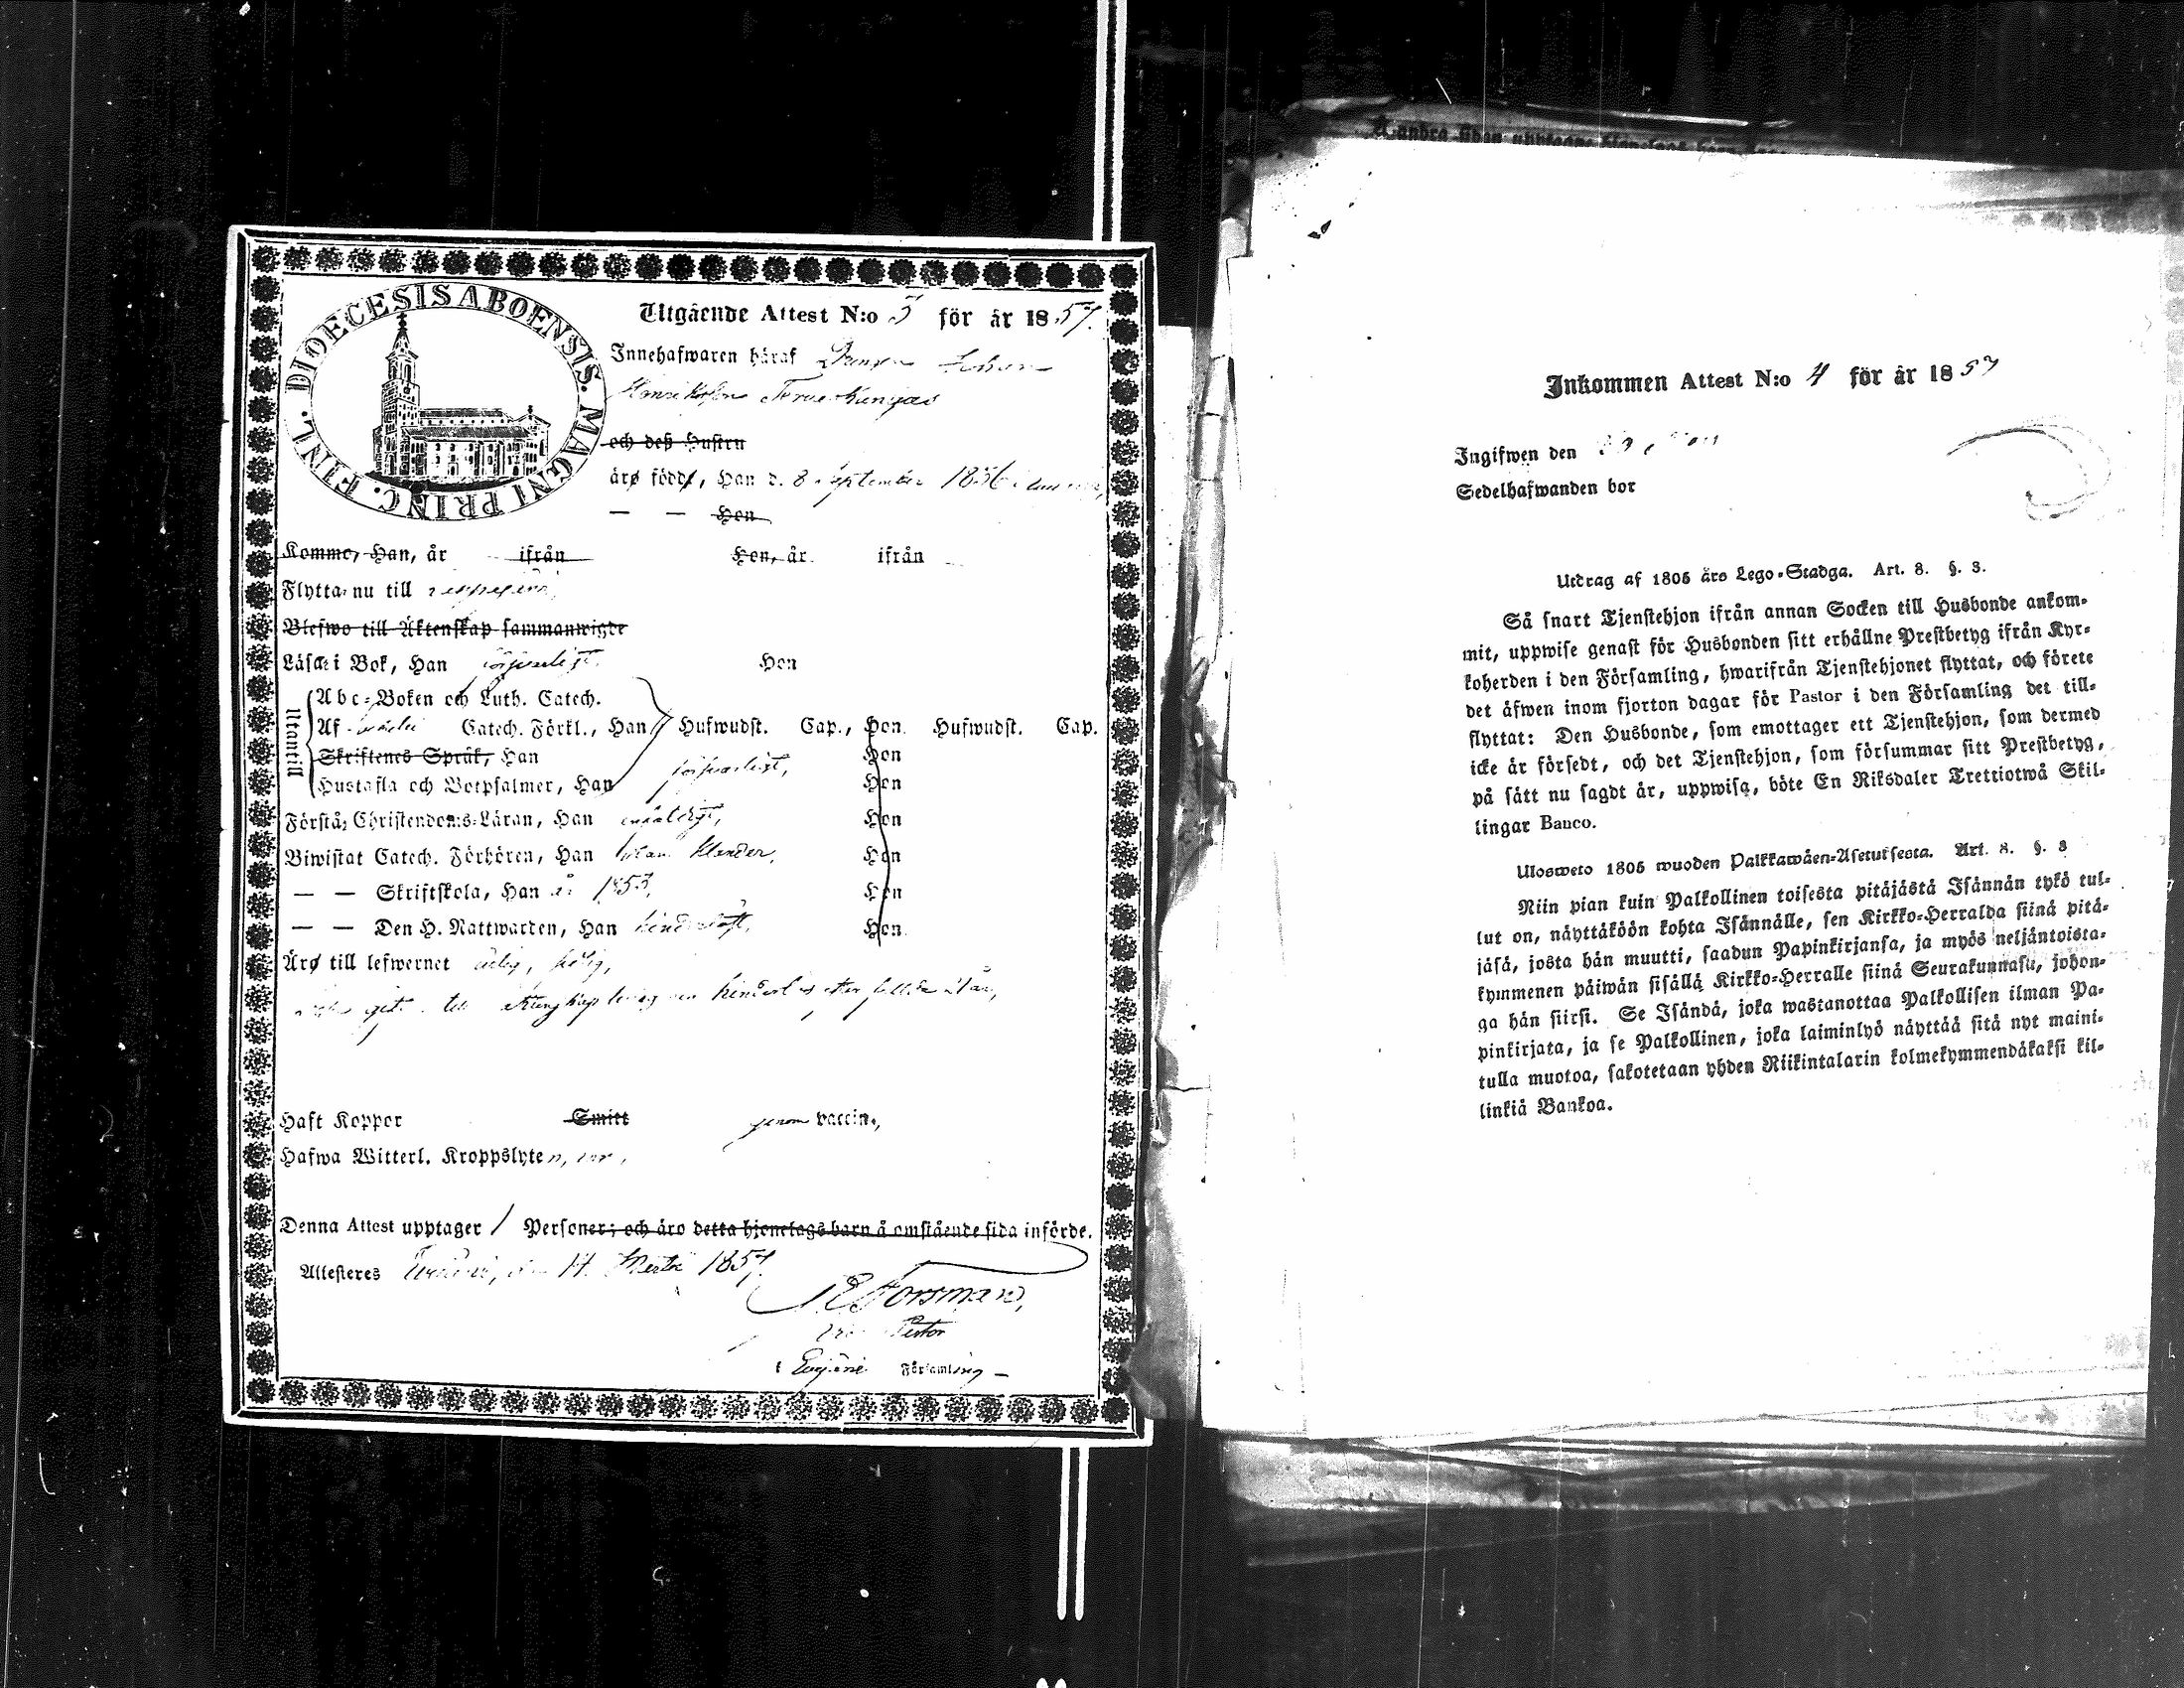 DIOECESIS ABOENSIS. MAGNI PRINC. FINL.
Utgående Attest N:o 3 för år 1857.
Innehafwaren häraf Drengen Johan
Henriksson
och deß Hustru
äro födde, Han d. 8 September 1836
— — Hon
Komme, Han, år ifrån Hon, år ifrån
Flytta nu till
Blefwo till Äktenskap sammanwigde
Läsa i Bok, Han försvarligt, Hon
Utantill
Abc-Boken och Luth. Catech.
Af Catech. Förkl., Han Hufwudst. Cap., Hon Hufwudst. Cap.
Skriftenes Språk, Han Hon
Hustafla och Botpsalmer, Han försvarligt, Hon
Förstå Christendoms-Läran, Han enfaldigt, Hon
Biwistat Catech. Förhören, Han utan klander, Hon
— — Skriftskola, Han år 1853, Hon
— — Den H. Nattwarden, Han Hon
Äro till lefwernet ärlig,
till hinderlös efter
Haft Koppor Smitt genom vaccin,
Hafwa Witterl. Kroppslyten,
Denna Attest upptager 1 Personer; och äro detta hjonelags barn å omstående sida införde.
Attesteres den 14 1857.
Forsman,
Pastor
i Församling
Inkommen Attest N:o 4 för år 1857
Ingifwen den
Sedelhafwanden bor
Utdrag af 1805 års Lego-Stadga. Art. 8. §. 3.
Så snart Tjenstehjon ifrån annan Socken till Husbonde ankom-
mit, uppwise genast för Husbonden sitt erhållne Prestbetyg ifrån Kyr-
koherden i den Församling, hwarifrån Tjenstehjonet flyttat, och förete
det äfwen inom fjorton dagar för Pastor i den Församling det till-
flyttat: Den Husbonde, som emottager ett Tjenstehjon, som dermed
icke är försedt, och det Tjenstehjon, som försummar sitt Prestbetyg,
på sätt nu sagdt är, uppwisa, böte En Riksdaler Trettiotwå Skil-
lingar Banco.
Ulosweto 1805 wuoden Palkkawäen-Asetuksesta. Art. 8. §. 3
Niin pian kuin Palkollinen toisesta pitäjästä Isännän tykö tul-
lut on, näyttäköön kohta Isännälle, sen Kirkko-Herralda siinä pitä-
jäsä, josta hän muutti, saadun Papinkirjansa, ja myös neljäntoista-
kymmenen päiwän sisällä Kirkko-Herralle siinä Seurakunnasa, johon-
ga hän siirsi. Se Isändä, joka wastanottaa Palkollisen ilman Pa-
pinkirjata, ja se Palkollinen, joka laiminlyö näyttää sitä nyt maini-
tulla muotoa, sakotetaan yhden Riikintalarin kolmekymmendäkaksi kil-
linkiä Bankoa.